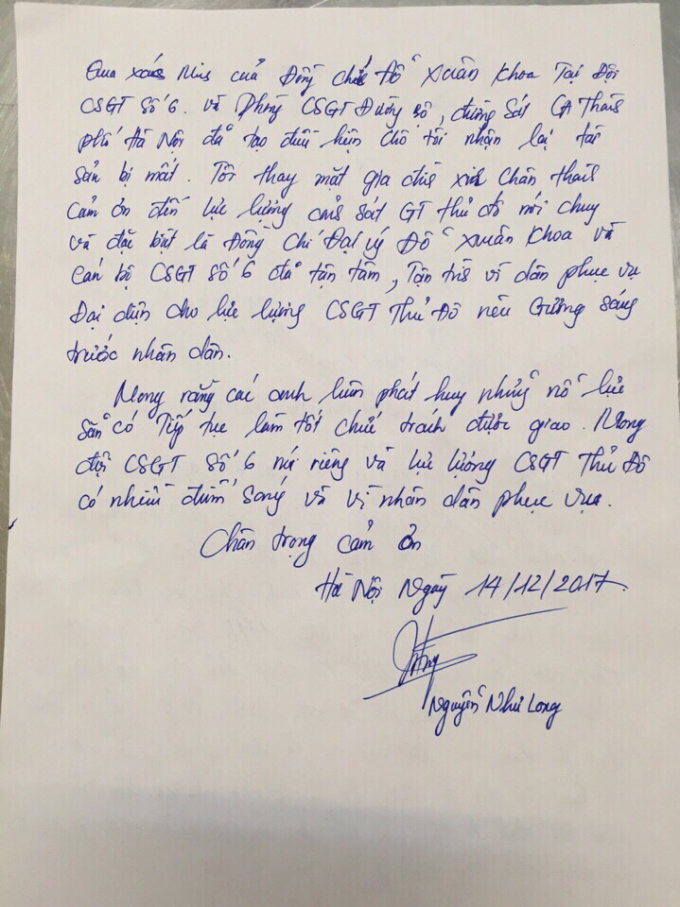 Qua xác Minh của Đồng chí Đỗ Xuân Khoa Tại Đội
CSGT Số 6. và Phòng CSGT Đường bộ, đường Sắt CA Thành
phố Hà Nội đã tạo điều kiện cho tôi nhận lại tài
sản bị mất. Tôi thay mặt gia đình xin Chân thành
cảm ơn đến lực lượng cảnh sát GT thủ đô nói chung
và đặc biệt là Đồng Chí Đại úy Đỗ Xuân Khoa và
cán bộ CSGT Số 6 đã tận tâm, Tận tình vì dân phục vụ
Đại diện cho lực lượng CSGT Thủ Đô nêu Gương sáng
trước nhân dân.
Mong rằng các anh luôn phát huy những nỗ lực
sẵn có Tiếp tục làm tốt chức trách được giao. Mong
đội CSGT Số 6 nói riêng và lực lượng CSGT Thủ Đô
có nhiều điểm sáng và vì nhân dân phục vụ.
Chân trọng cảm ơn
Hà Nội Ngày 14/12/2017.
Nguyễn Như Long